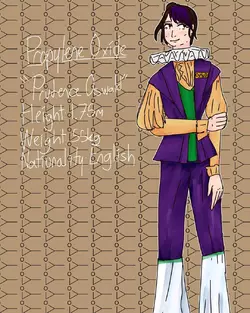 Propylene Oxide
"Prudence Oswald"
Height 1.75m
Weight 55kg
Nationality English